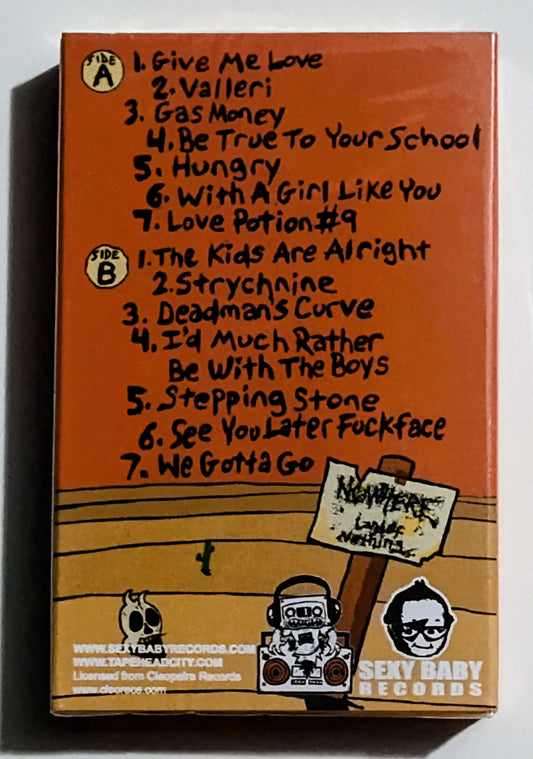 SIDE A
1. Give Me Love
2. Valleri
3. Gas Money
4. Be True To Your School
5. Hungry
6. With A Girl Like You
7. Love Potion #9
SIDE B
1. The Kids Are Alright
2. Strychnine
3. Deadman's Curve
4. I'd Much Rather
Be With The Boys
5. Stepping Stone
6. See You Later Fuckface
7. We Gotta Go
NOWHERE
Land of
Nothing
WWW.SEXYBABYRECORDS.COM
WWW.TAPEHEADCITY.COM
Licensed from Cleopatra Records
www.cleorecs.com
SEXY BABY
RECORDS